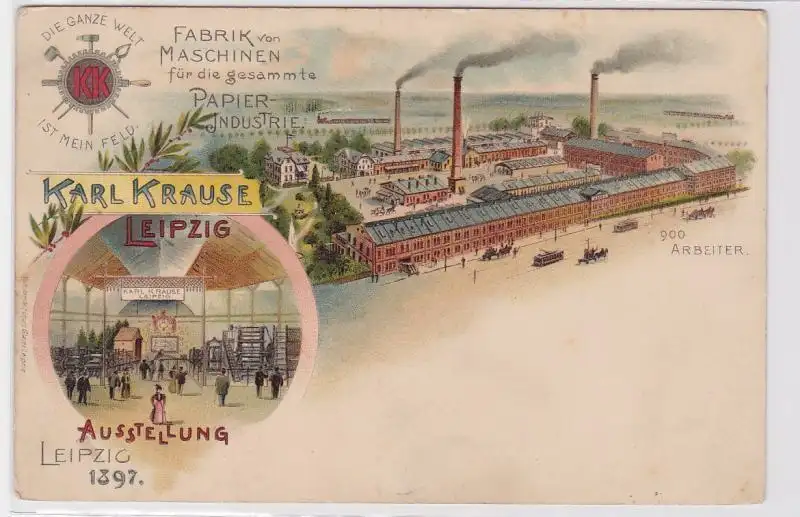 DIE GANZE WELT
KK
IST MEIN FELD.
FABRIK von
MASCHINEN
für die gesammte
PAPIER-
INDUSTRIE.
KARL KRAUSE
LEIPZIG
KARL KRAUSE
LEIPZIG
900
ARBEITER.
AUSSTELLUNG
LEIPZIG
1897.